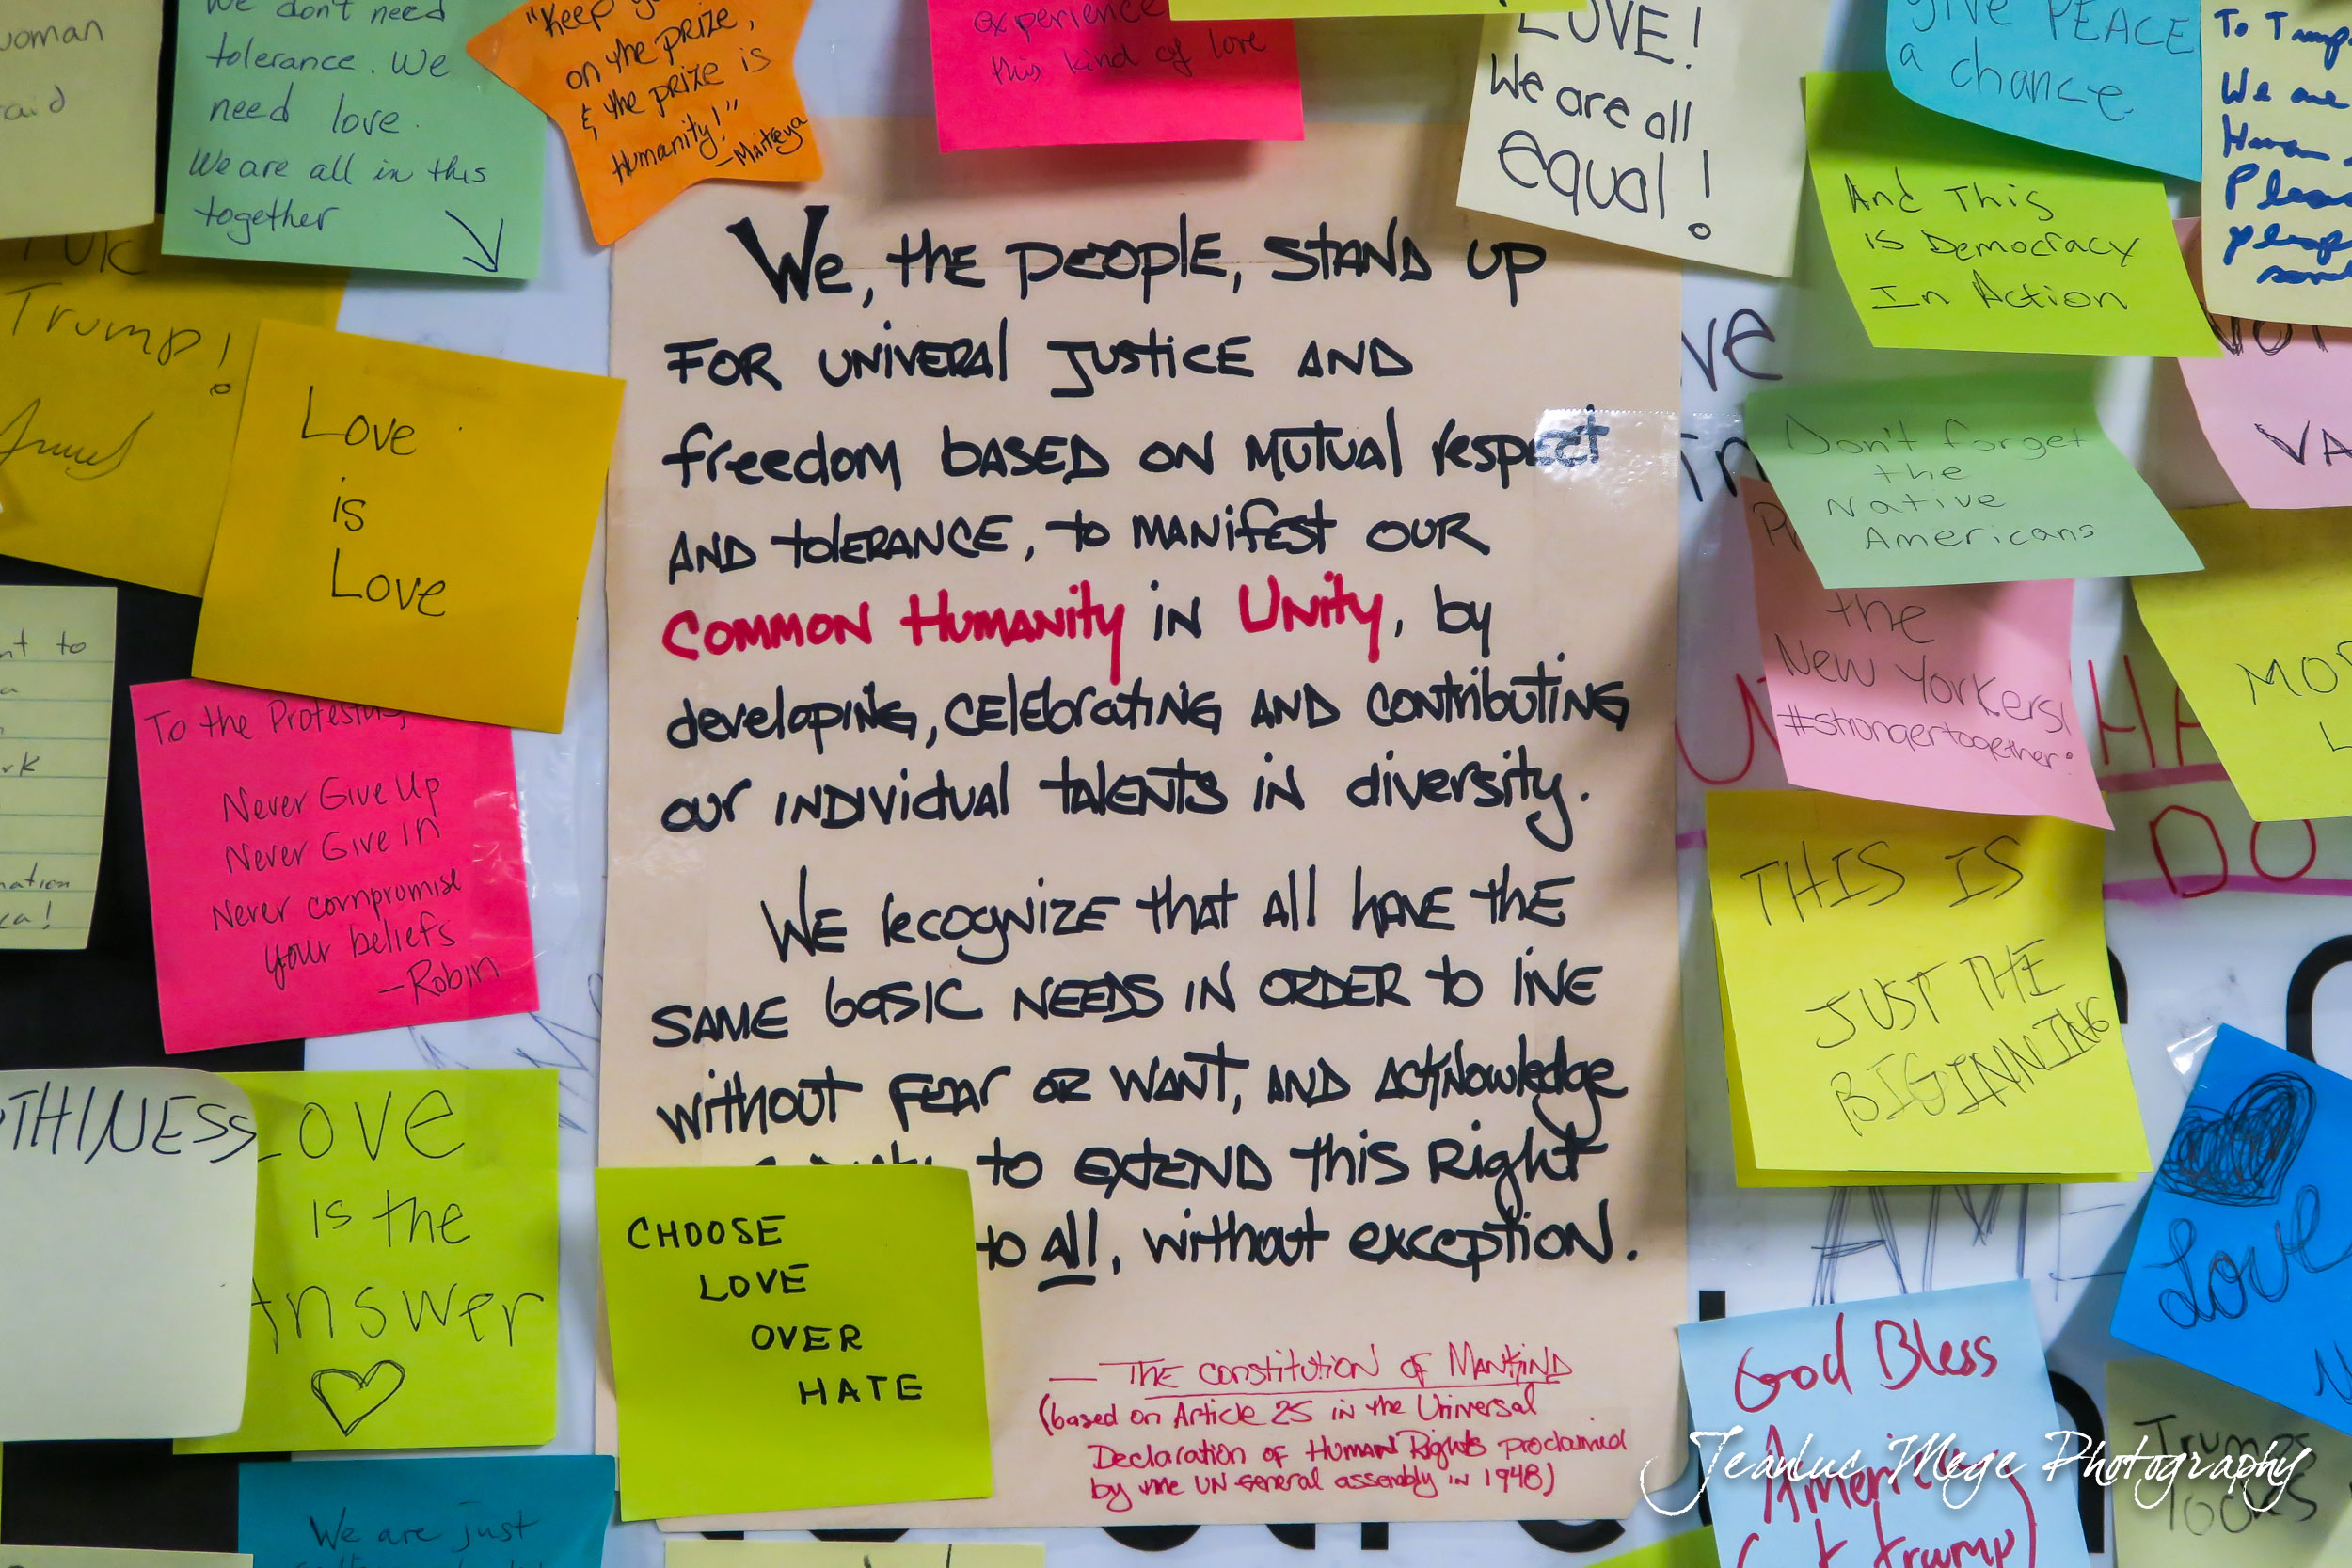 woman
We don't need
tolerance. We
need love.
We are all in this
together
"Keep
on the prize,
& the prize is
Humanity!"
—Maitreya
experience
this kind of love
LOVE!
We are all
equal!
GIVE PEACE
a chance
To Trump
We are
Human
And This
is Democracy
In Action
Trump!
Love
is
Love
We, the people, stand up
for univeral justice and
freedom based on mutual respect
and tolerance, to manifest our
Common Humanity in Unity, by
developing, celebrating and contributing
our individual talents in diversity.
We recognize that all have the
same basic needs in order to live
without fear or want, and acknowledge
to extend this Right
to all, without exception.
— The Constitution of Mankind
(based on Article 25 in the Universal
Declaration of Human Rights proclaimed
by the UN General assembly in 1948)
Don't forget
the
Native
Americans
the
New Yorkers!
#strongertogether
To the Protestors,
Never Give Up
Never Give in
Never compromise
your beliefs
—Robin
THIS IS
JUST THE
BIGINNING
Love
is the
Answer
CHOOSE
LOVE
OVER
HATE
Love
God Bless
America
trump)
We are just
Jeanluc Mege Photography